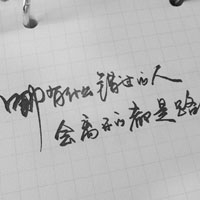 哪有什么错过的人
会离开的都是路